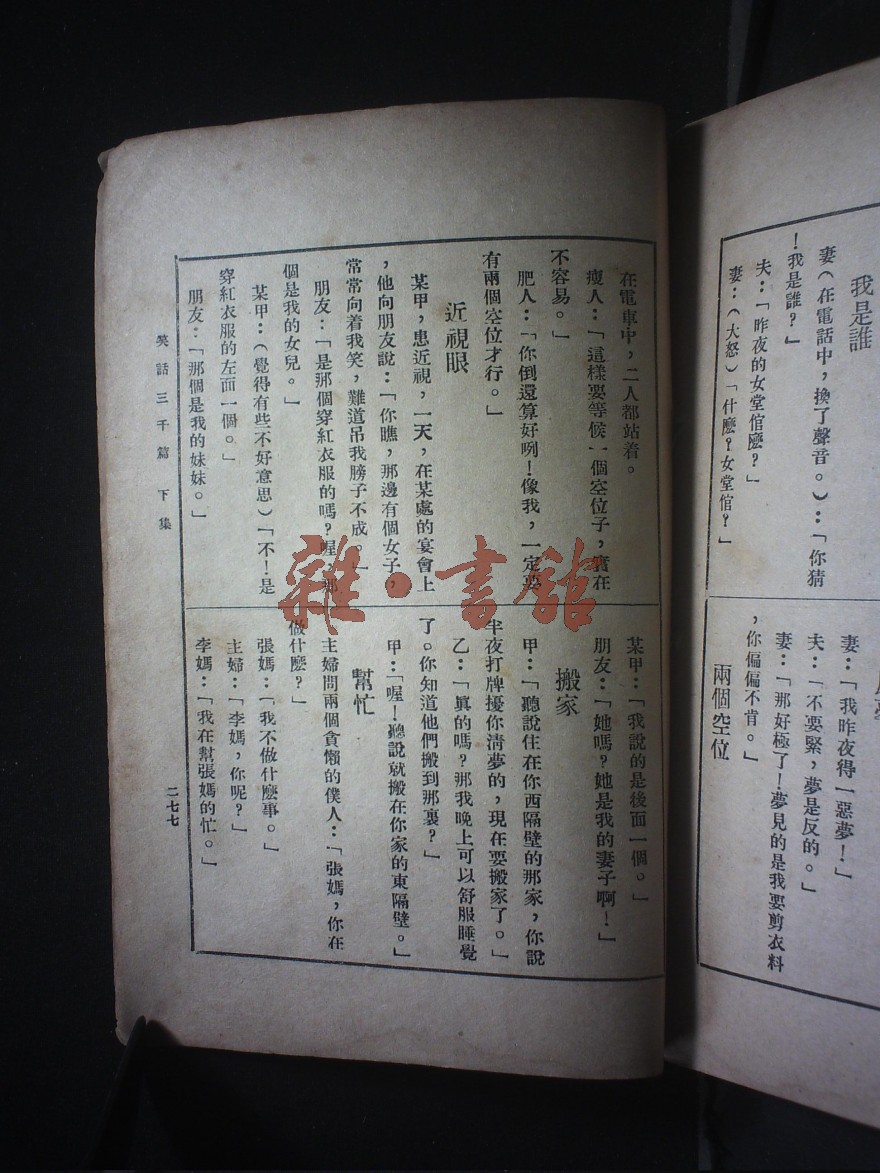 我是誰
妻(在電話中，換了聲音。)：「你猜
！我是誰？」
夫：「昨夜的女堂倌麽？」
妻：(大怒)「什麽？女堂倌？」
妻：「我昨夜得一惡夢！」
夫：「不要緊，夢是反的。」
妻：「那好極了！夢見的是我要剪衣料
，你偏偏不肯。」
兩個空位
在電車中，二人都站着。
瘦人：「這樣要等候一個空位子，實在
不容易。」
肥人：「你倒還算好咧！像我，一定要
有兩個空位才行。」
近視眼
某甲，患近視，一天，在某處的宴會上
，他向朋友說：「你瞧，那邊有個女子，
常常向着我笑，難道吊我膀子不成。」
朋友：「是那個穿紅衣服的嗎？喔、那
個是我的女兒。」
某甲：(覺得有些不好意思)「不！是
穿紅衣服的左面一個。」
朋友：「那個是我的妹妹。」
某甲：「我說的是後面一個。」
朋友：「她嗎？她是我的妻子啊！」
搬家
甲：「聽說住在你西隔壁的那家，你說
半夜打牌擾你清夢的，現在要搬家了。」
乙：「真的嗎？那我晚上可以舒服睡覺
了。你知道他們搬到那裏？」
甲：「喔！聽說就搬在你家的東隔壁。」
幫忙
主婦問兩個貪懶的僕人：「張媽，你在
做什麽？」
張媽：「我不做什麽事。」
主婦：「李媽，你呢？」
李媽：「我在幫張媽的忙。」
笑話三千篇 下集
二七七
雜·書館